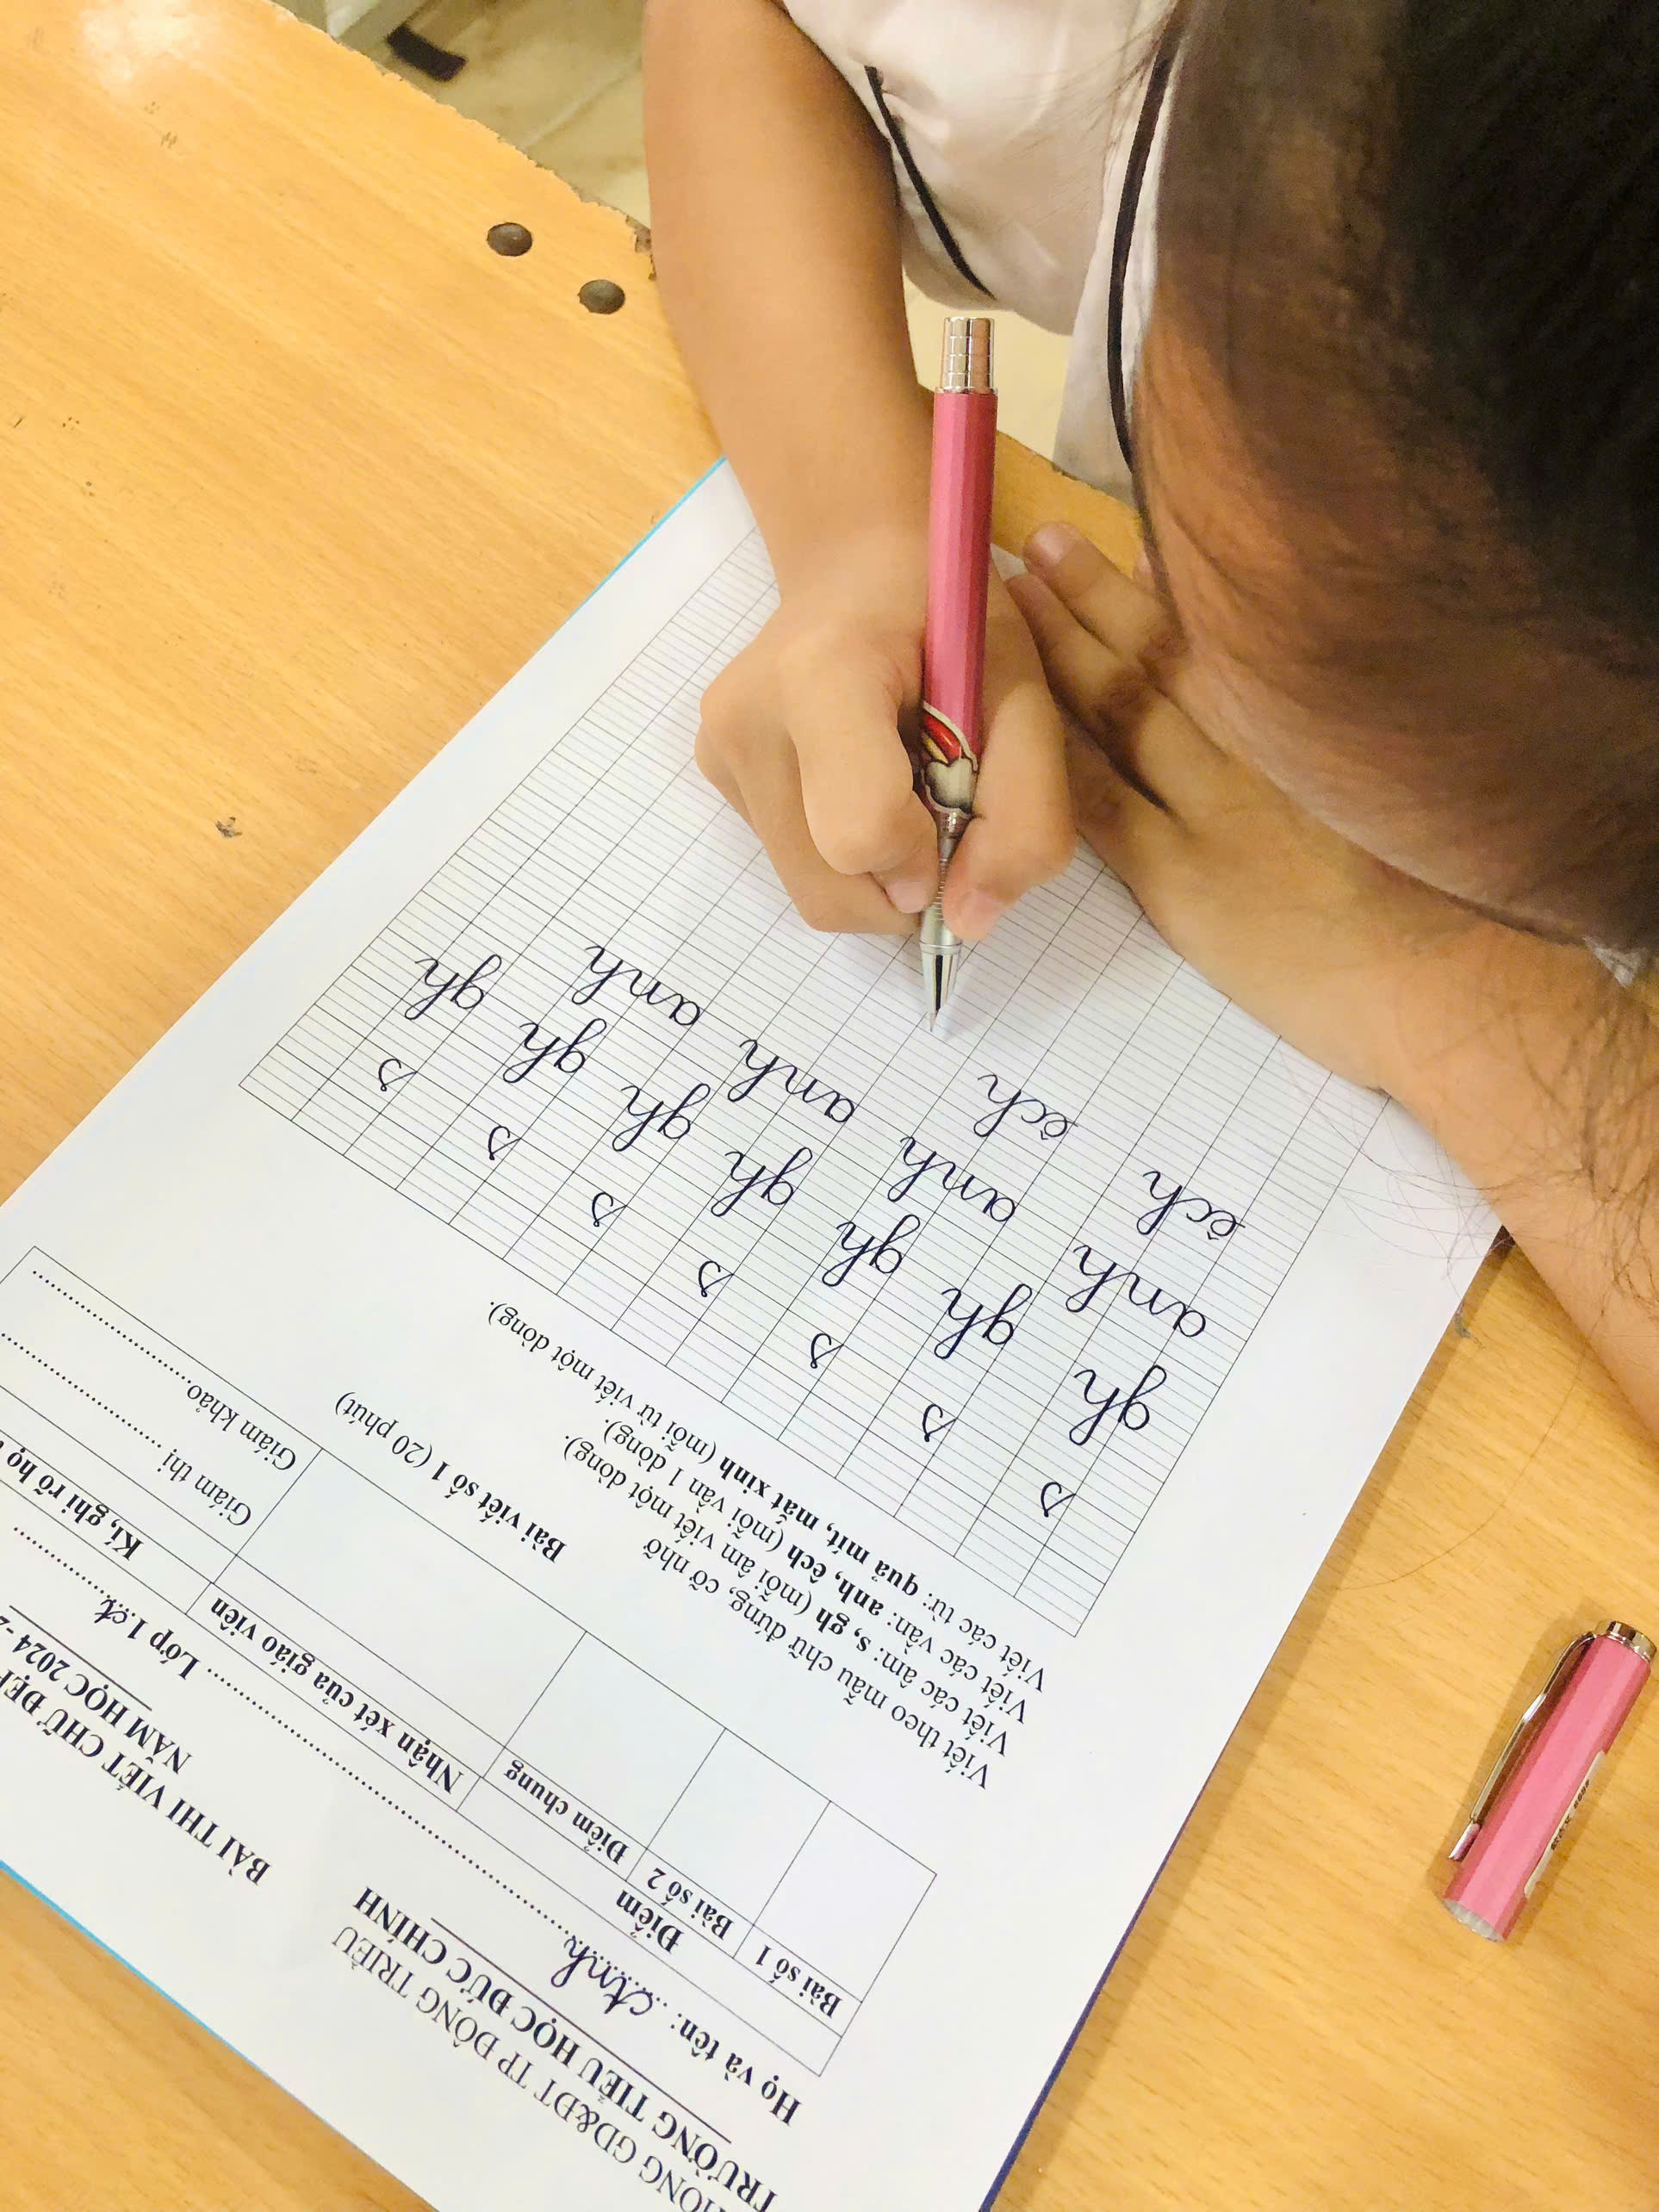 PHÒNG GD&ĐT TP ĐÔNG TRIỀU
TRƯỜNG TIỂU HỌC ĐỨC CHÍNH
BÀI THI VIẾT CHỮ ĐẸP
NĂM HỌC 2024 - 2
Họ và tên: Anh Lớp 1
Điểm Nhận xét của giáo viên Kí, ghi rõ họ
Bài số 1 Bài số 2 Điểm chung
Giám thị
Giám khảo
Bài viết số 1 (20 phút)
Viết theo mẫu chữ đứng, cỡ nhỡ
Viết các âm: s, gh (mỗi âm viết một dòng).
Viết các vần: anh, êch (mỗi vần 1 dòng).
Viết các từ: quả mít, mắt xinh (mỗi từ viết một dòng).
s s s s s s s
gh gh gh gh gh gh gh
anh anh anh anh
êch êch